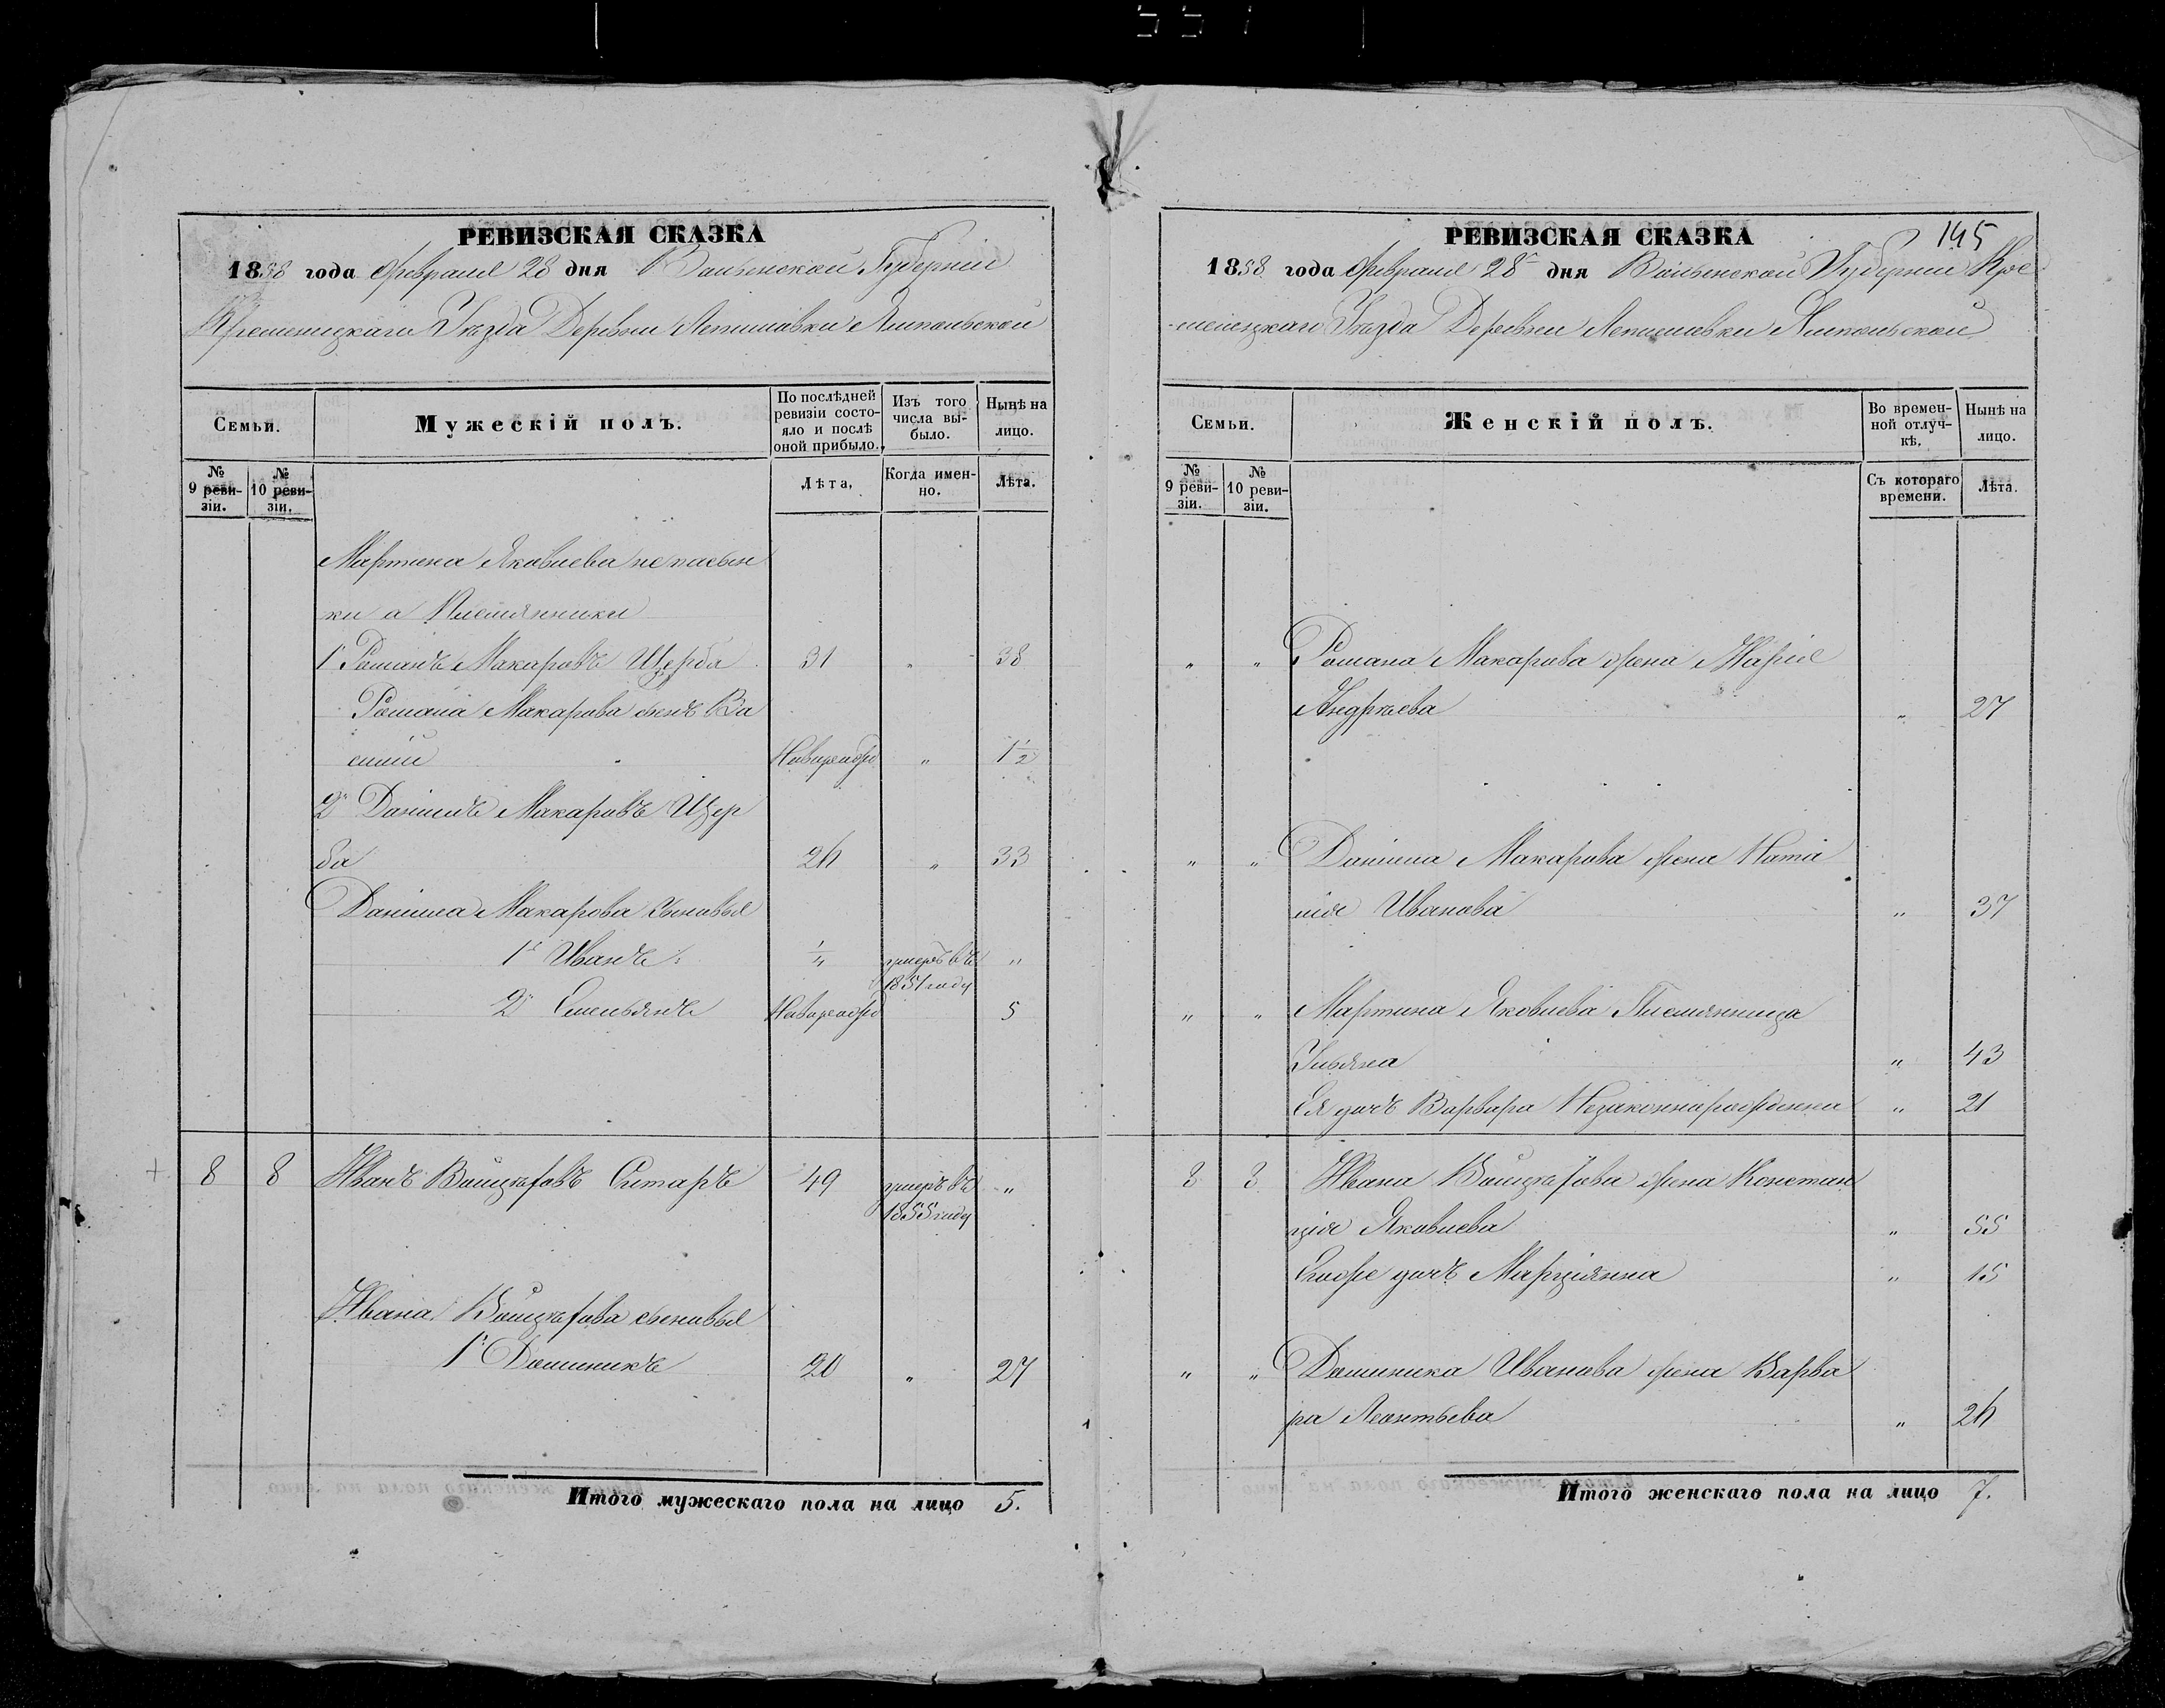 551
РЕВИЗСКАЯ СКАЗКА
1858 года Февраля 28 дня Волынской Губерніи
Кременецкаго Уѣзда Деревни Лепешовки Ямпольской
Семьи.
Мужескій полъ.
По послѣдней ревизіи состояло и послѣ оной прибыло.
Изъ того числа выбыло.
Нынѣ на лицо.
№ 9 ревизіи.
№ 10 ревизіи.
Лѣта,
Когда именно.
Лѣта.
Мартина Яковлева не пасын
ки а Племянники
1й Романъ Макаровъ Щерба 31 " 38
Романа Макарова сынъ Ва
силій Новорожд " 1 1/2
2й Даніилъ Макаровъ Щер
ба 26 " 33
Даніила Макарова сыновья
1й Иванъ 1/4 умеръ въ 1851 году "
2й Емельянъ Новорожд 5
8 8 Иванъ Войцѣховъ Ситаръ 49 умеръ въ 1855 году "
Ивана Войцѣхова сыновья
1й Доминикъ 20 " 27
Итого мужескаго пола на лицо 5.
145
РЕВИЗСКАЯ СКАЗКА
1858 года Февраля 28 дня Волынской Губерніи Кре
менецкаго Уѣзда Деревни Лепешовки Ямпольской
Семьи.
Женскій полъ.
Во временной отлучкѣ,
Нынѣ на лицо.
№ 9 ревизіи.
№ 10 ревизіи.
Съ котораго времени.
Лѣта.
" " Романа Макарова жена Марія
Андрѣева " 27
" " Даніила Макарова жена Ната
лія Иванова " 37
" " Мартина Яковлева Племянница
Ульяна " 43
Ея дочь Варвара Незаконнорожденна " 21
8 8 Ивана Войцѣхова жена Констан
ція Яковлева " 55
дочь Марціянна " 15
" " Доминика Иванова жена Варва
ра Леонтьева " 26
Итого женскаго пола на лицо 7.